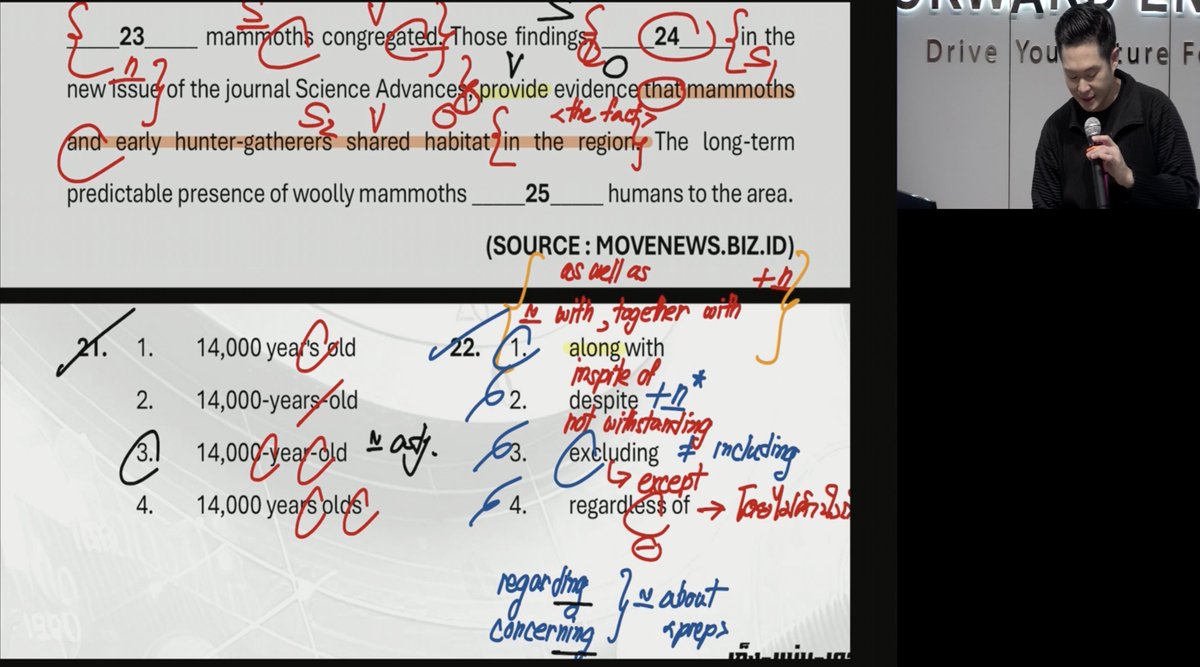 ORWARD EN
Drive You ture F
S V S
_____23_____ mammoths congregated. Those findings, _____24_____ in the
n V O S1
new issue of the journal Science Advances, provide evidence that mammoths
S2 V <the fact>
and early hunter-gatherers shared habitat in the region. The long-term
predictable presence of woolly mammoths _____25_____ humans to the area.
(SOURCE : MOVENEWS.BIZ.ID)
as well as +n
≈ with, together with
21. 1. 14,000 year's old
2. 14,000-years-old
3. 14,000-year-old ≈ adj.
4. 14,000 years olds
22. 1. along with
inspite of
2. despite +n*
not withstanding
3. excluding ≠ including
↳ except
4. regardless of →
regarding
concerning
≈ about
<prep>